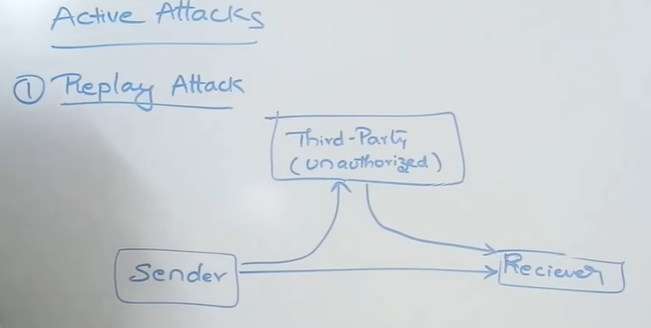 Active Attacks
① Replay Attack
Third-Party
(unauthorized)
Sender
Reciever